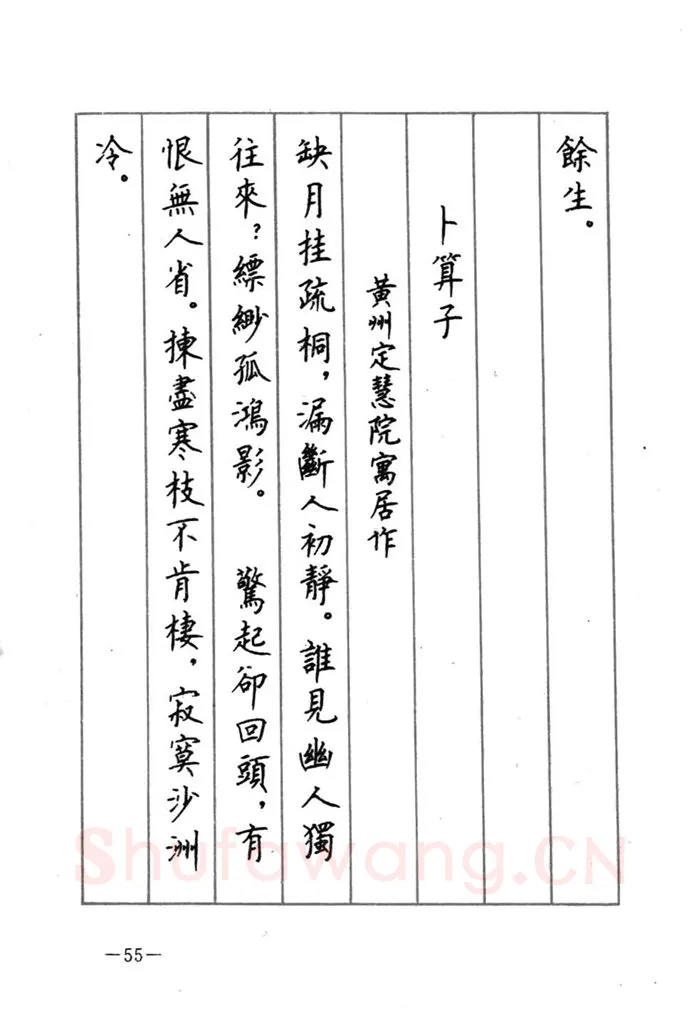 餘生。
卜算子
黃州定慧院寓居作
缺月挂疏桐，漏斷人初靜。誰見幽人獨
往來？縹緲孤鴻影。　驚起卻回頭，有
恨無人省。揀盡寒枝不肯棲，寂寞沙洲
冷。
Shufawang.CN
—55—